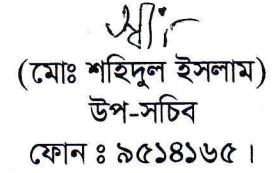 স্বাঃ
(মোঃ শহিদুল ইসলাম)
উপ-সচিব
ফোন ঃ ৯৫১৪১৬৫ ।